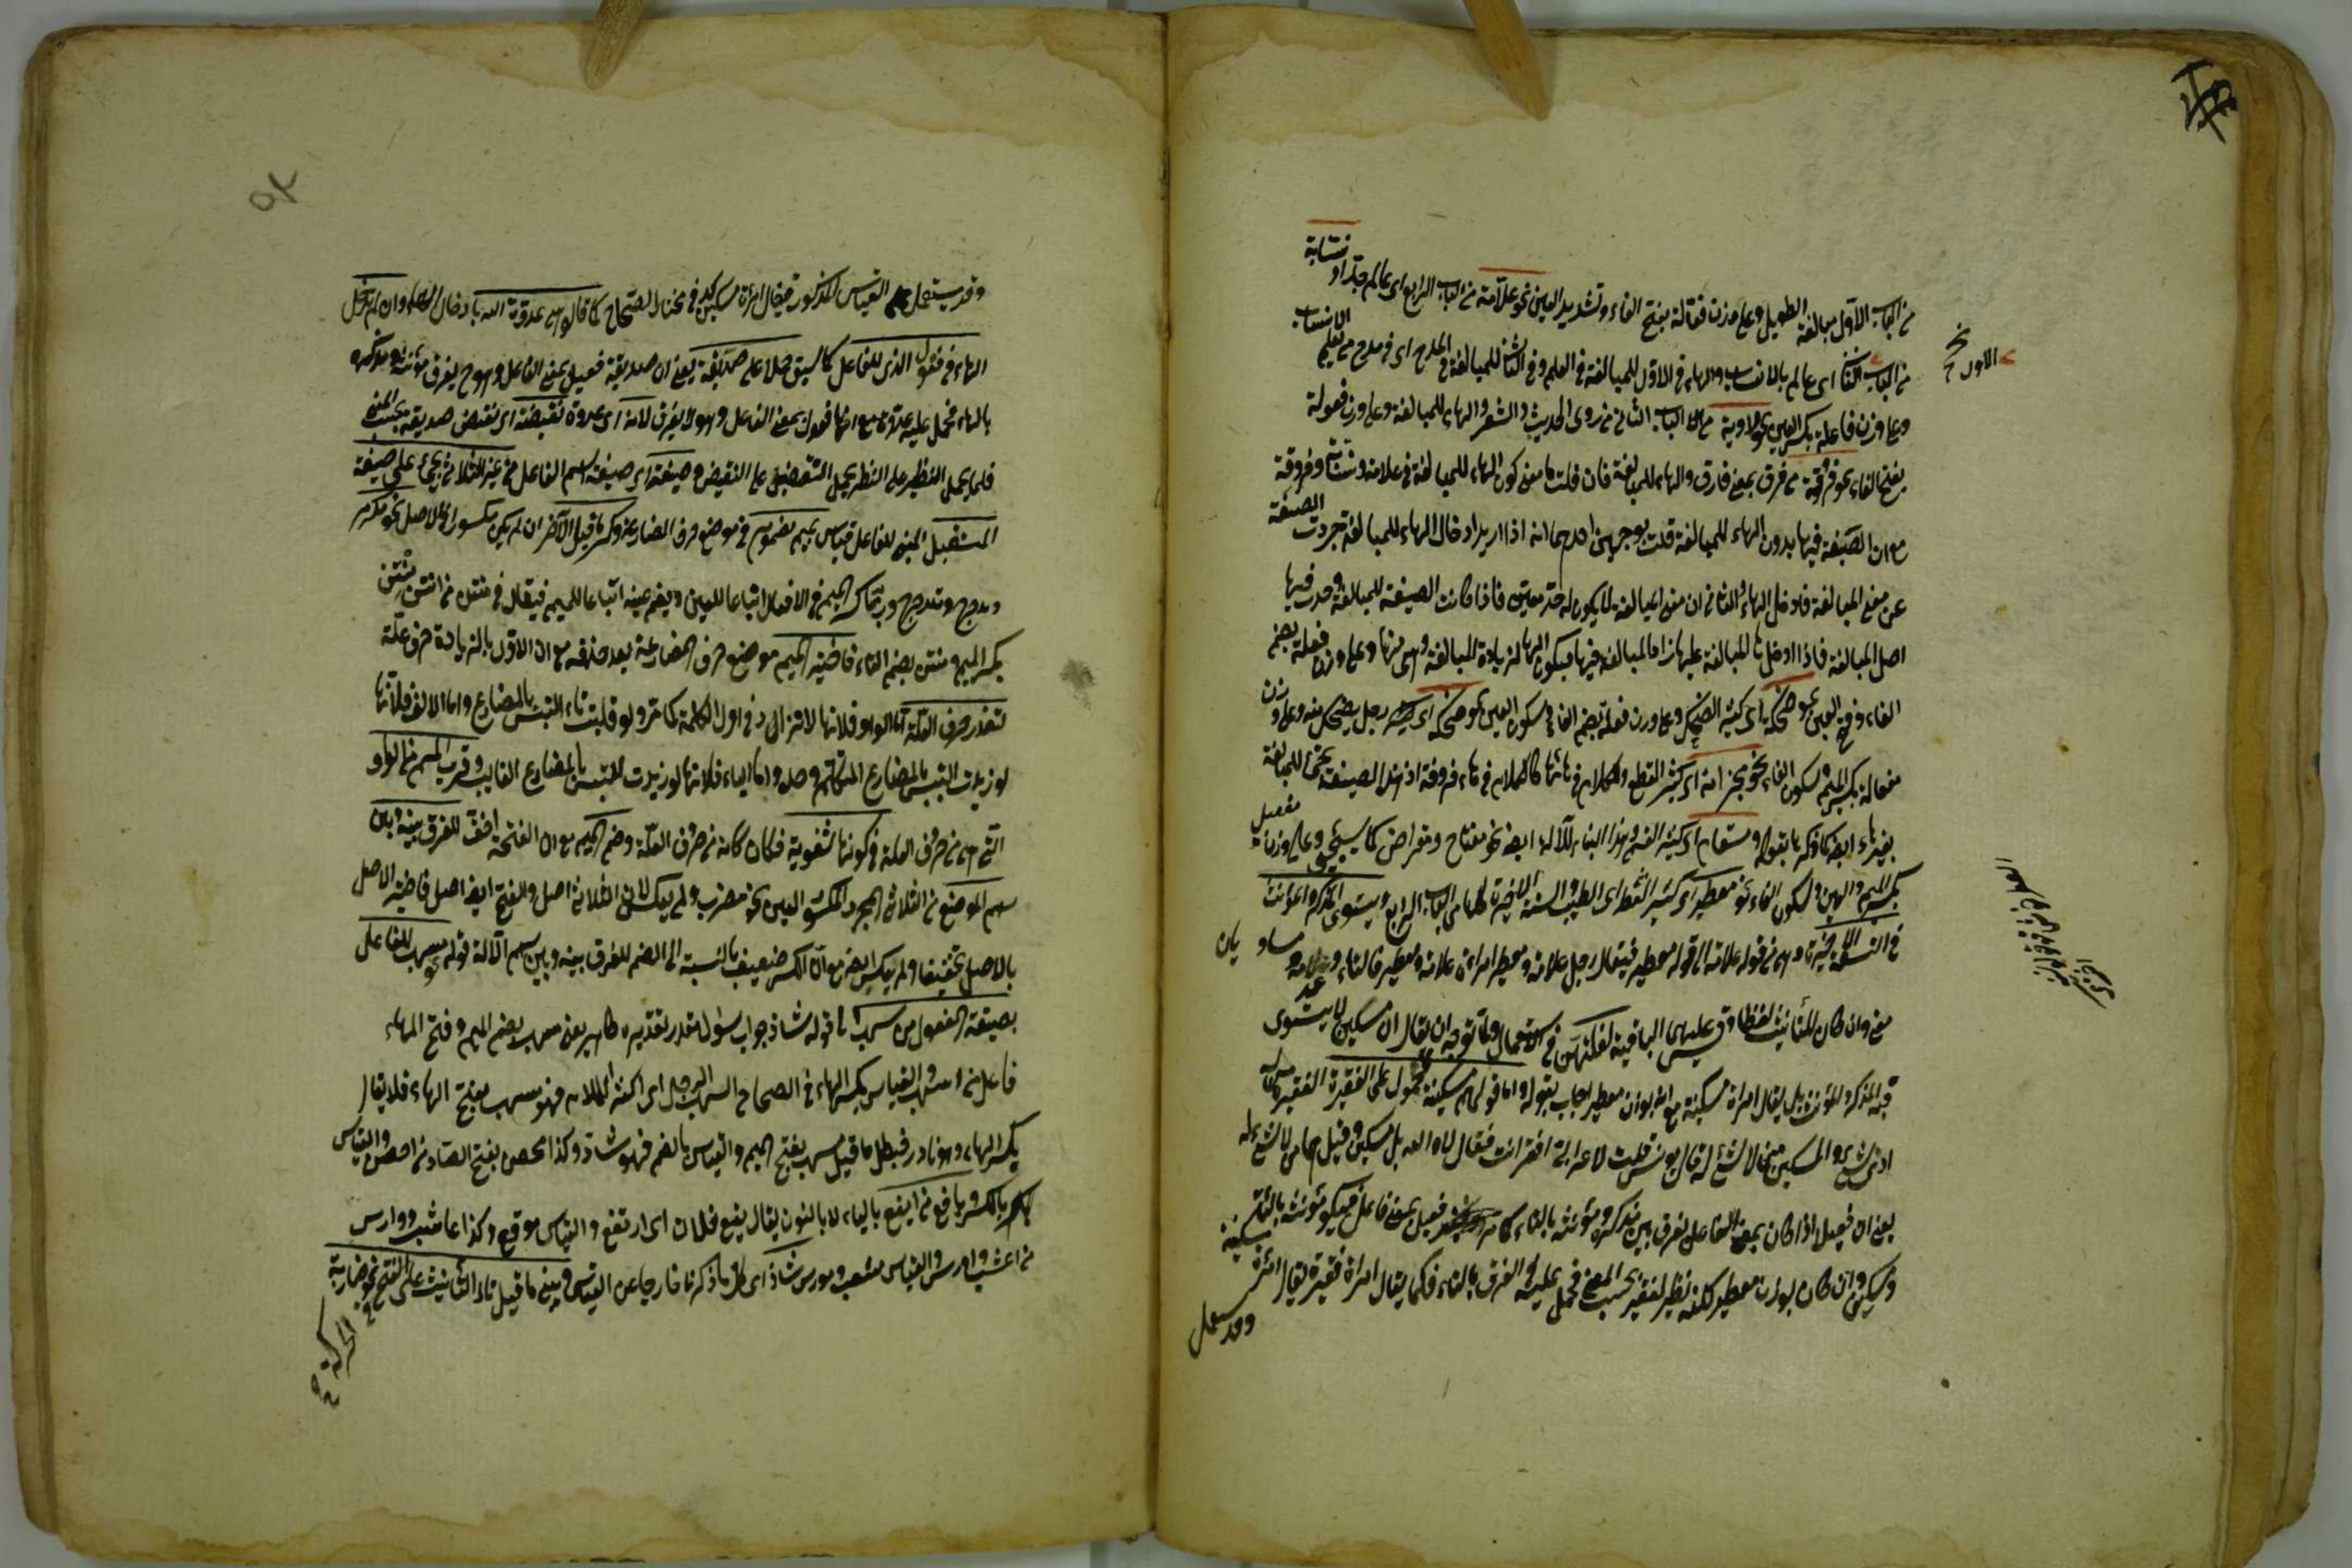 من الباب الاول مبالغة الطويل وعلى وزن فعّالة بفتح الفاء وتشديد العين نحو علّامة من الباب الرابع اى عالم جدّا و نسّابة
من الباب اى عالم بالانساب والهاء فى الاول للمبالغة فى العلم وفى الثانى للمبالغة فى المدح اى فى مدح من تعلم الانساب
وعلى وزن فاعلة بكسر العين نحو راوية من الباب الثانى من روى الحديث والشعر والهاء للمبالغة وعلى وزن فعولة
بفتح الفاء نحو فروقة من فرق بمعنى فارق والهاء للمبالغة فان قلت ما معنى كون الهاء للمبالغة فى علامة ونسابة وفروقة
مع ان الصيغة فيها بدون الهاء للمبالغة قلت بوجهين احدهما انه اذا اريد ادخال الهاء للمبالغة جردت الصيغة
عن معنى المبالغة فادخل الهاء والثانى ان معنى المبالغة لا يكون له حد معين فاذا كانت الصيغة للمبالغة وجدت فيها
اصل المبالغة فاذا ادخل تاء للمبالغة عليها زاد المبالغة فيها فيكون الهاء لزيادة المبالغة وعلى وزن فعلة بضم
الفاء وفتح العين نحو ضحكة اى كثير الضحك وعلى وزن فعلة بضم الفاء وسكون العين نحو ضحكة اى رجل يضحك منه وعلى وزن
مفعالة بكسر الميم وسكون الفاء نحو مجزامة اى كثير القطع والكلام فى تائها كالكلام فى تاء فروقة اذ هذه الصيغة تجئ للمبالغة
بغير تاء ايضا كما ذكره بقوله ومسقام اى كثير السقم وهذا البناء للآلة ايضا نحو مفتاح ومقراض كما سيجئ وعلى وزن مفعيل
بكسر الميم والعين وسكون الفاء نحو معطير اى كثير العطر اى الطيب والستة الاخيرة كلها من الباب الرابع ويستوى المذكر والمؤنث
فى التسعة الاخيرة وهى من قوله علامة الى قوله معطير فيقال رجل علامة ومعطير امرأة علامة ومعطير فالتاء
معنى وان كان للتأنيث لفظا وقس عليهن الباقية لقلتهن فى الاستعمال ولما توجه ان يقال ان مسكين لا يستوى
فيه المذكر والمؤنث بل يقال امرأة مسكينة مع انه بوزن معطير اجاب بقوله واما قولهم مسكينة فمحمول على الفقيرة الفقير من له
ادنى شئ والمسكين من لا شئ له قال يونس قلت لاعرابى افقير انت فقال لا والله بل مسكين وقيل هما من لا شئ له
يعنى ان فعيل اذا كان بمعنى الفاعل يفرق بين مذكره ومؤنثه بالتاء كما مر فعيل بمعنى فاعل فيكون مؤنثه بالتاء
ومسكين وان كان بوزن معطير لكنه نظير لفقير بحسب المعنى فحمل عليه فى الفرق بالتاء فكما يقال امرأة فقيرة يقال امرأة مسكينة
وقد يستعمل
الاول
وقد يستعمل القياس المذكور فيقال امرأة مسكين فى مختار الصحاح كما قالوا هى عدوة الله بادخال الهاء وان لم تدخل
الهاء فى فعول الذى للفاعل كما سبق حملا على صديقة يعنى ان صديقة فعيل بمعنى الفاعل وهو يفرق مؤنثه ومذكره
بالهاء فحمل عليه عدوة مع انها فعول بمعنى الفاعل وهو لا يفرق لانه اى عدوة نقيضه اى نقيض صديقة بحسب المعنى
فكما يحمل النظير على النظير يحمل النقيض على النقيض وصيغته اى صيغة اسم الفاعل من غير الثلاثى يجئ على صيغة
المستقبل المبنى للفاعل قياس بميم مضموم فى موضع حرف المضارعة وكسر ما قبل الآخر ان لم يكن مكسورا فى الاصل نحو مكرم
ومدحرج ومتدحرج وربما كسر الميم فى الافعال اتباعا للعين ويضم عينه اتباعا للميم فيقال فى منتن من انتن منتن
بكسر الميم ومنتن بضم التاء فاختير الميم موضع حرف المضارعة بعد حذفه مع ان الاولى بالزيادة حرف علة
لتعذر حرف العلة اما الواو فلانها لا تزاد فى اول الكلمة كما مر ولو قلبت تاء التبس بالمضارع واما الالف فلانها
لو زيدت التبس بالمضارع المتكلم وحده واما الياء فلانها لو زيدت التبس بالمضارع الغائب وقرب الميم من الواو
التى هى من حروف العلة فى كونها شفوية فكان كانه من حروف العلة وضم الميم مع ان الفتحة اخف للفرق بينه وبين
اسم الموضع من الثلاثى المجرد المكسور العين نحو مضرب ولم يعكس لان الثلاثى اصل والفتح ايضا اصل فاختير الاصل
بالاصل تخفيفا ولم يكسر ايضا مع ان الكسر ضعيف بالنسبة الى الضم للفرق بينه وبين اسم الآلة قوله نحو مسهب للفاعل
بصيغة المفعول من اسهب الى قوله شاذ جواب سؤال مقدر تقديره ظاهر يعنى مسهب بضم الميم وفتح الهاء
فاعل من اسهب والقياس بكسر الهاء فى الصحاح اسهب الرجل اى اكثر الكلام فهو مسهب بفتح الهاء فلا يقال
بكسر الهاء وهو نادر فبطل ما قيل مسهب بفتح الميم والقياس بالضم فهو شاذ وكذا محصن بفتح الصاد من احصن والقياس
بالكسر ويافع من ايفع بالياء لا بالنون يقال يفع فلان اى ارتفع والقياس موفع وكذا عاشب ووارس
من اعشب واورس والقياس معشب ومورس شاذ اى كل ما ذكرنا خارجا عن القياس ويبنى ما قبل تاء التأنيث على الفتح نحو ضاربة